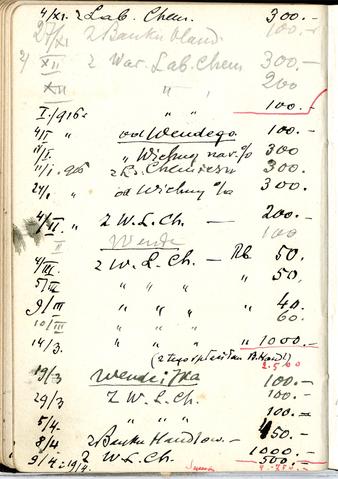 4/XI. z Lab. Chem. 300.-
27/XI z Banku Hand. 100.-
2) XII z War. Lab. Chem 300
XII " " 200
I/916 " " 100.-
4/I " od Wendego. 100.-
/I. " Wichny na % 300
11/I. 916 z 300.
24/I " od Wichny % 300.
4/II. z W. L. Ch. — 200.-
II Wende 100
4/III. z W. L. Ch. — Rb 50.
5/III " " " " 50.
9/III " " " " 40.
10/III " " " 60.
14/3. " " " " 1000.-
(z tego B. Handl)
2.500
19/3 Wende i Ska 100.-
29/3 Z W. L. Ch. 100.-
5/4. " " " 100.-
8/4 z Banku Handlow. — 450.-
9/4 i 19/4. z W. L. Ch. 1000.-
500.-